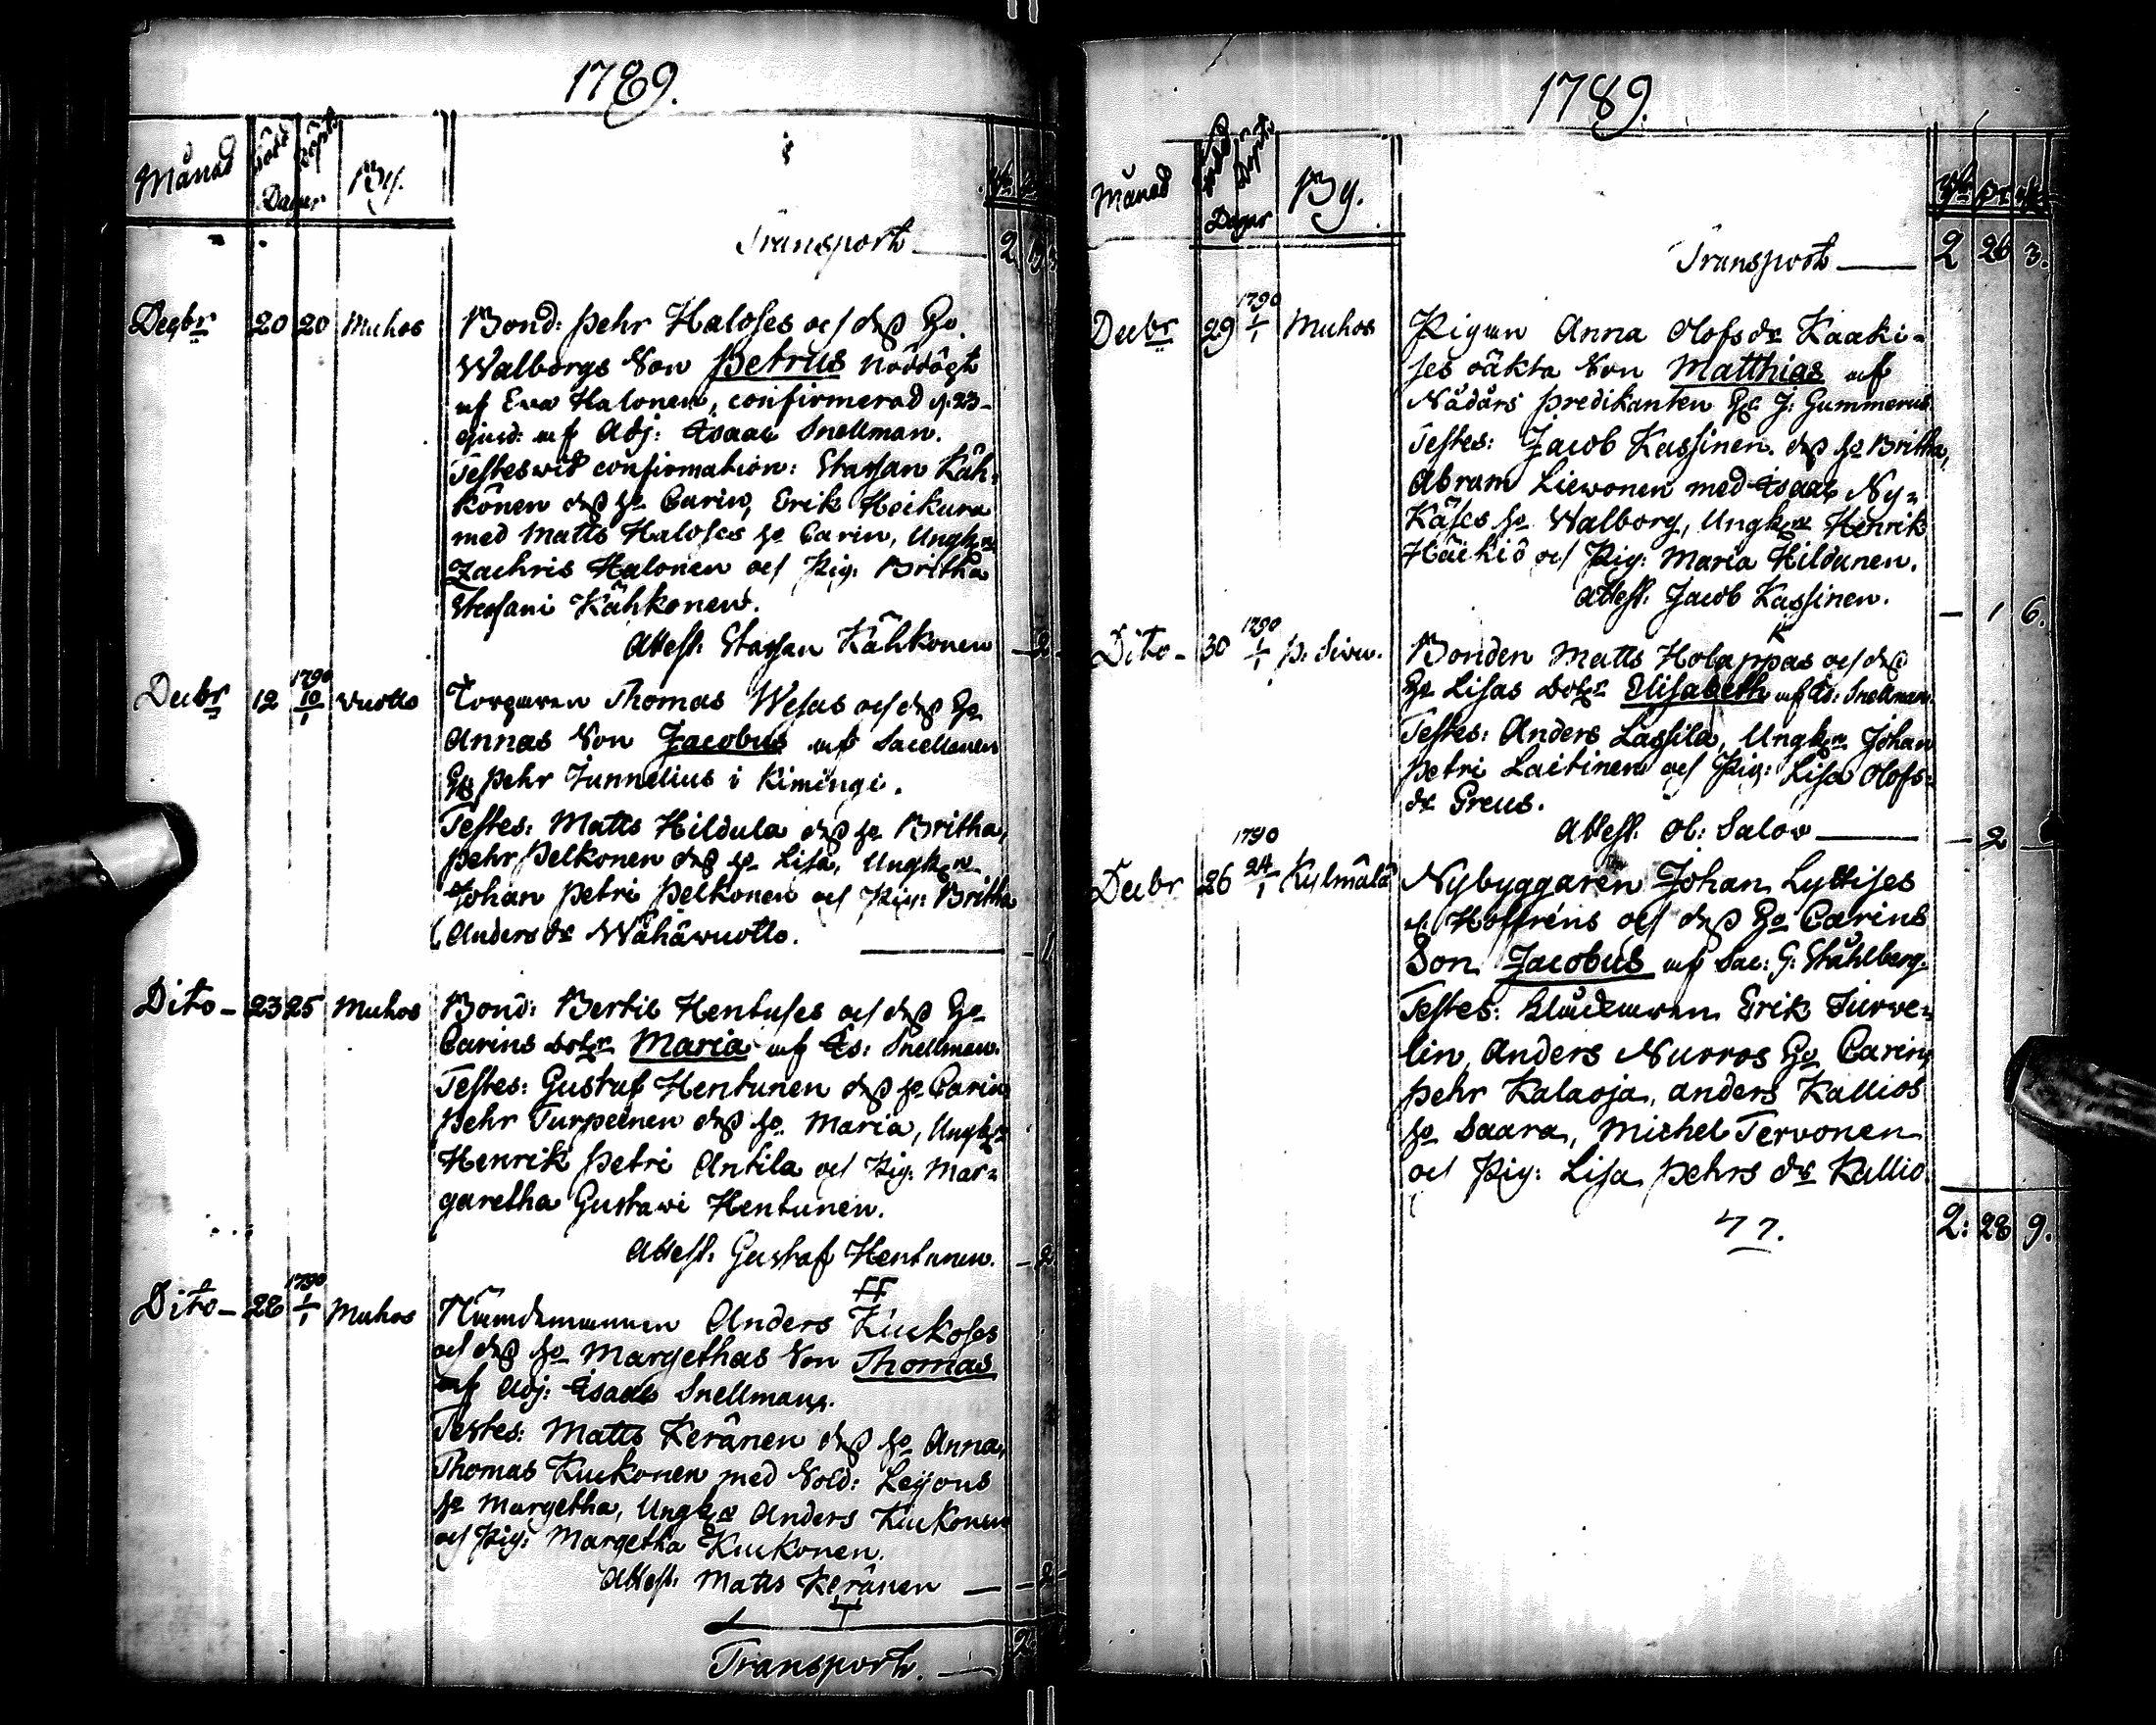 1789.
Månad Född Döpt Dagar By.
Transport 2 19 3
Decbr 20 20 Muhos Bond: Pehr Haloses och dess Ho
Walborgs Son Petrus nöddögt
af Eva Halonen, confirmerad d. 23
ejusd: af Adj: Isaac Snellman.
Testes wid confirmation: Staffan Käh-
könen dess ho Carin, Erik Heikura
med Matts Haloses ho Carin, Ungkn
Zachris Halonen och Pig: Britha
Staffani Kähkonen.
Attest. Staffan Kähkonen — 2
Decbr 12 1790 10/1 Vuotto Torparen Thomas Wesas och dess Ho
Annas Son Jacobus af Sacellanen
Hr Pehr Junnelius i Kimingi.
Testes: Matts Hildula dess ho Britha,
Pehr Pelkonen dess ho Lisa, Ungkn
Johan Petri Pelkonen och Pig: Britha
Anders dr Wähävuotto. — 1
Dito — 23 25 Muhos Bond: Bertil Hentuses och dess Ho
Carins dotr Maria af Is: Snellman.
Testes: Gustaf Hentunen dess ho Carin
Pehr Turpeinen dess ho Maria, Ungkn
Henrik Petri Antila och Pig: Mar-
garetha Gustawi Hentunen.
Attest. Gustaf Hentunen. — 2
Dito — 28 1790 1/1 Muhos Nämdemannen Anders Kuckoses
och dess ho Margethas Son Thomas
af Adj: Isaac Snellman.
Testes: Matts Keränen dess ho Anna,
Thomas Kuckonen med Sold: Leijons
ho Margetha, Ungkn Anders Kuckonen
och Pig: Margetha Kuckonen.
Attest. Matts Keränen — 2
Transport. — 2
1789.
Månad Född Döpt Dagar By.
Transport — 2 26 3.
Decbr 29 1790 1/1 Muhos Pigan Anna Olofsdr Kaaki-
ses oäkta Son Matthias af
Nådårs Predikanten Hr J: Gummerus
Testes: Jacob Kassinen. dess ho Britha,
Abram Liewonen med Isaac Ny-
Käses ho Walborg, Ungkn Henrik
Häikiö och Pig: Maria Hildunen.
Attest. Jacob Kassinen. — 1 6.
Dito — 30 1790 1/1 P. Sivu. Bonden Matts Holappas och dess
Ho Lisas dotr Elisabeth af Is: Snellman
Testes: Anders Lassila, Ungkn Johan
Petri Laitinen och Pig: Lisa Olofs-
dr Greus.
Attest. Ol: Salov — 2 —
Decbr 26 1790 24/1 Kylmälä Nybyggaren Johan Lyttises
el. Hoffréns och dess Ho Carins
Son Jacobus af Sac: G: Ståhlberg.
Testes: Klåckaren Erik Turve-
lin, Anders Nurros Ho Carin,
Pehr Kalaoja, Anders Kallios
ho Saara, Michel Tervonen
och Pig: Lisa Pehrs dr Kallio.
77. 2: 28 9.